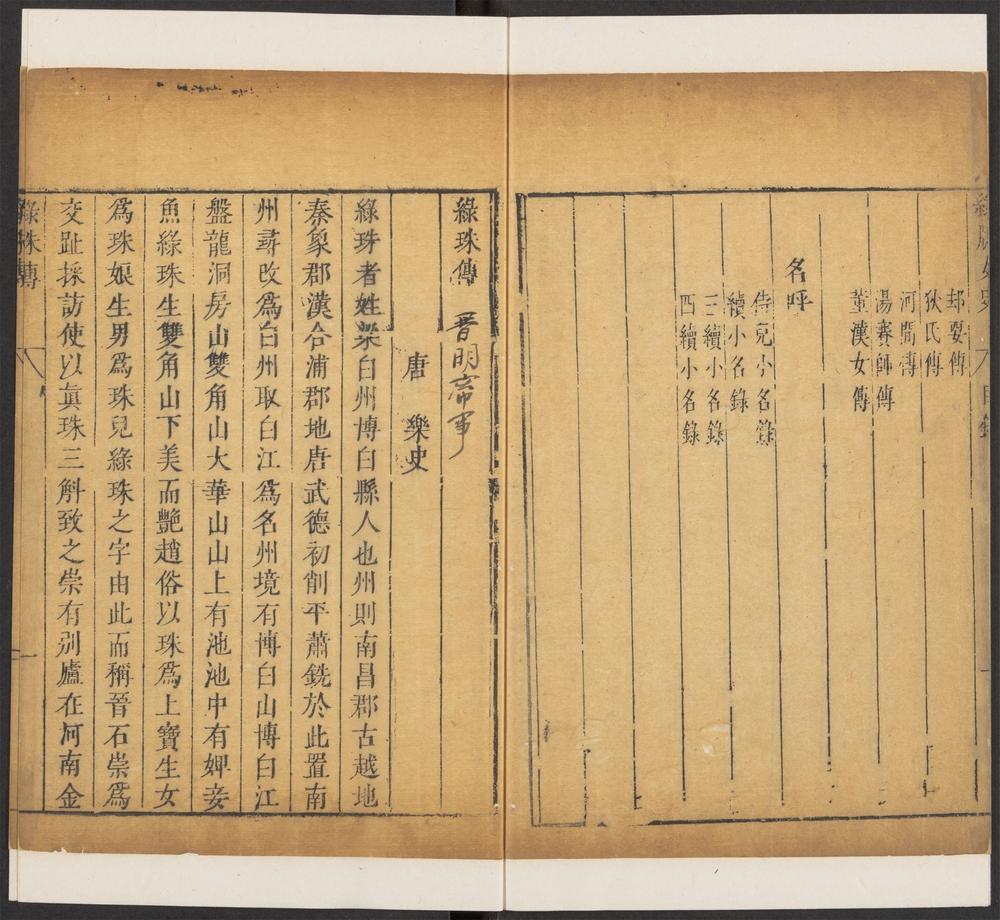 綠牕女史 八 目錄 一
却要傳
狄氏傳
河間傳
湯賽師傳
董漢女傳
名呼
侍兒小名錄
續小名錄
三續小名錄
四續小名錄
綠珠傳 晋明帝事
唐 樂史
綠珠者姓梁白州博白縣人也州則南昌郡古越地
秦象郡漢合浦郡地唐武德初削平蕭銑於此置南
州尋改爲白州取白江爲名州境有博白山博白江
盤龍洞房山雙角山大華山山上有池池中有婢妾
魚綠珠生雙角山下美而艷趙俗以珠爲上寶生女
爲珠娘生男爲珠兒綠珠之字由此而稱晉石崇爲
交趾採訪使以眞珠三斛致之崇有別廬在河南金
綠珠傳 八 一